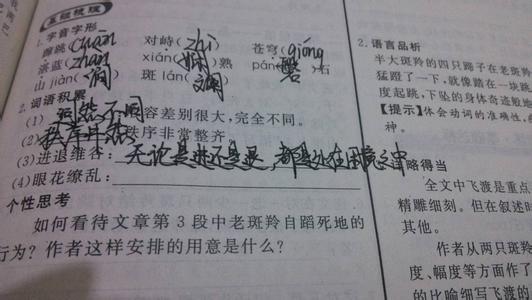 基础梳理
1.字音字形
蹿跳(cuān) 对峙(zhì) 苍穹(qióng)
湛蓝(zhàn) xián(娴)熟 pán(磐)石
山jiàn(涧) 斑lán(斓)
2.词语积累
(1)迥然不同:内容差别很大,完全不同。
(2)秩序井然:秩序非常整齐。
(3)进退维谷:无论是进还是退,都是处在困境之中
(4)眼花缭乱:
个性思考
如何看待文章第3段中老斑羚自蹈死地的
行为?作者这样安排的用意是什么?
2.语言品析
半大斑羚的四只蹄子在老斑羚
猛蹬了一下,就像踏在一块跳
度起跳,下坠的身体奇迹般地
【提示】体会动词的准确性,
神。
详略得当
全文中飞渡是重点
精雕细刻。但在叙述时
其他。
作者从两只斑羚
度、幅度等方面作了
的比喻细写飞渡的